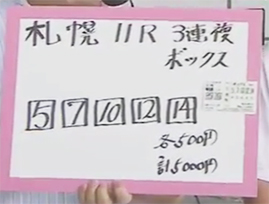 札幌 11R 3連複
ボックス
5 7 10 12 14
各500円
計5000円